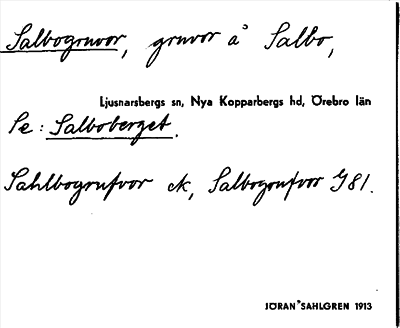 Salbogruvor, gruvor å Salbo,
Ljusnarsbergs sn, Nya Kopparbergs hd, Örebro län
Se: Salboberget.
Sahlbogrufvor ek, Salbogrufvor G81.
JÖRAN SAHLGREN 1913